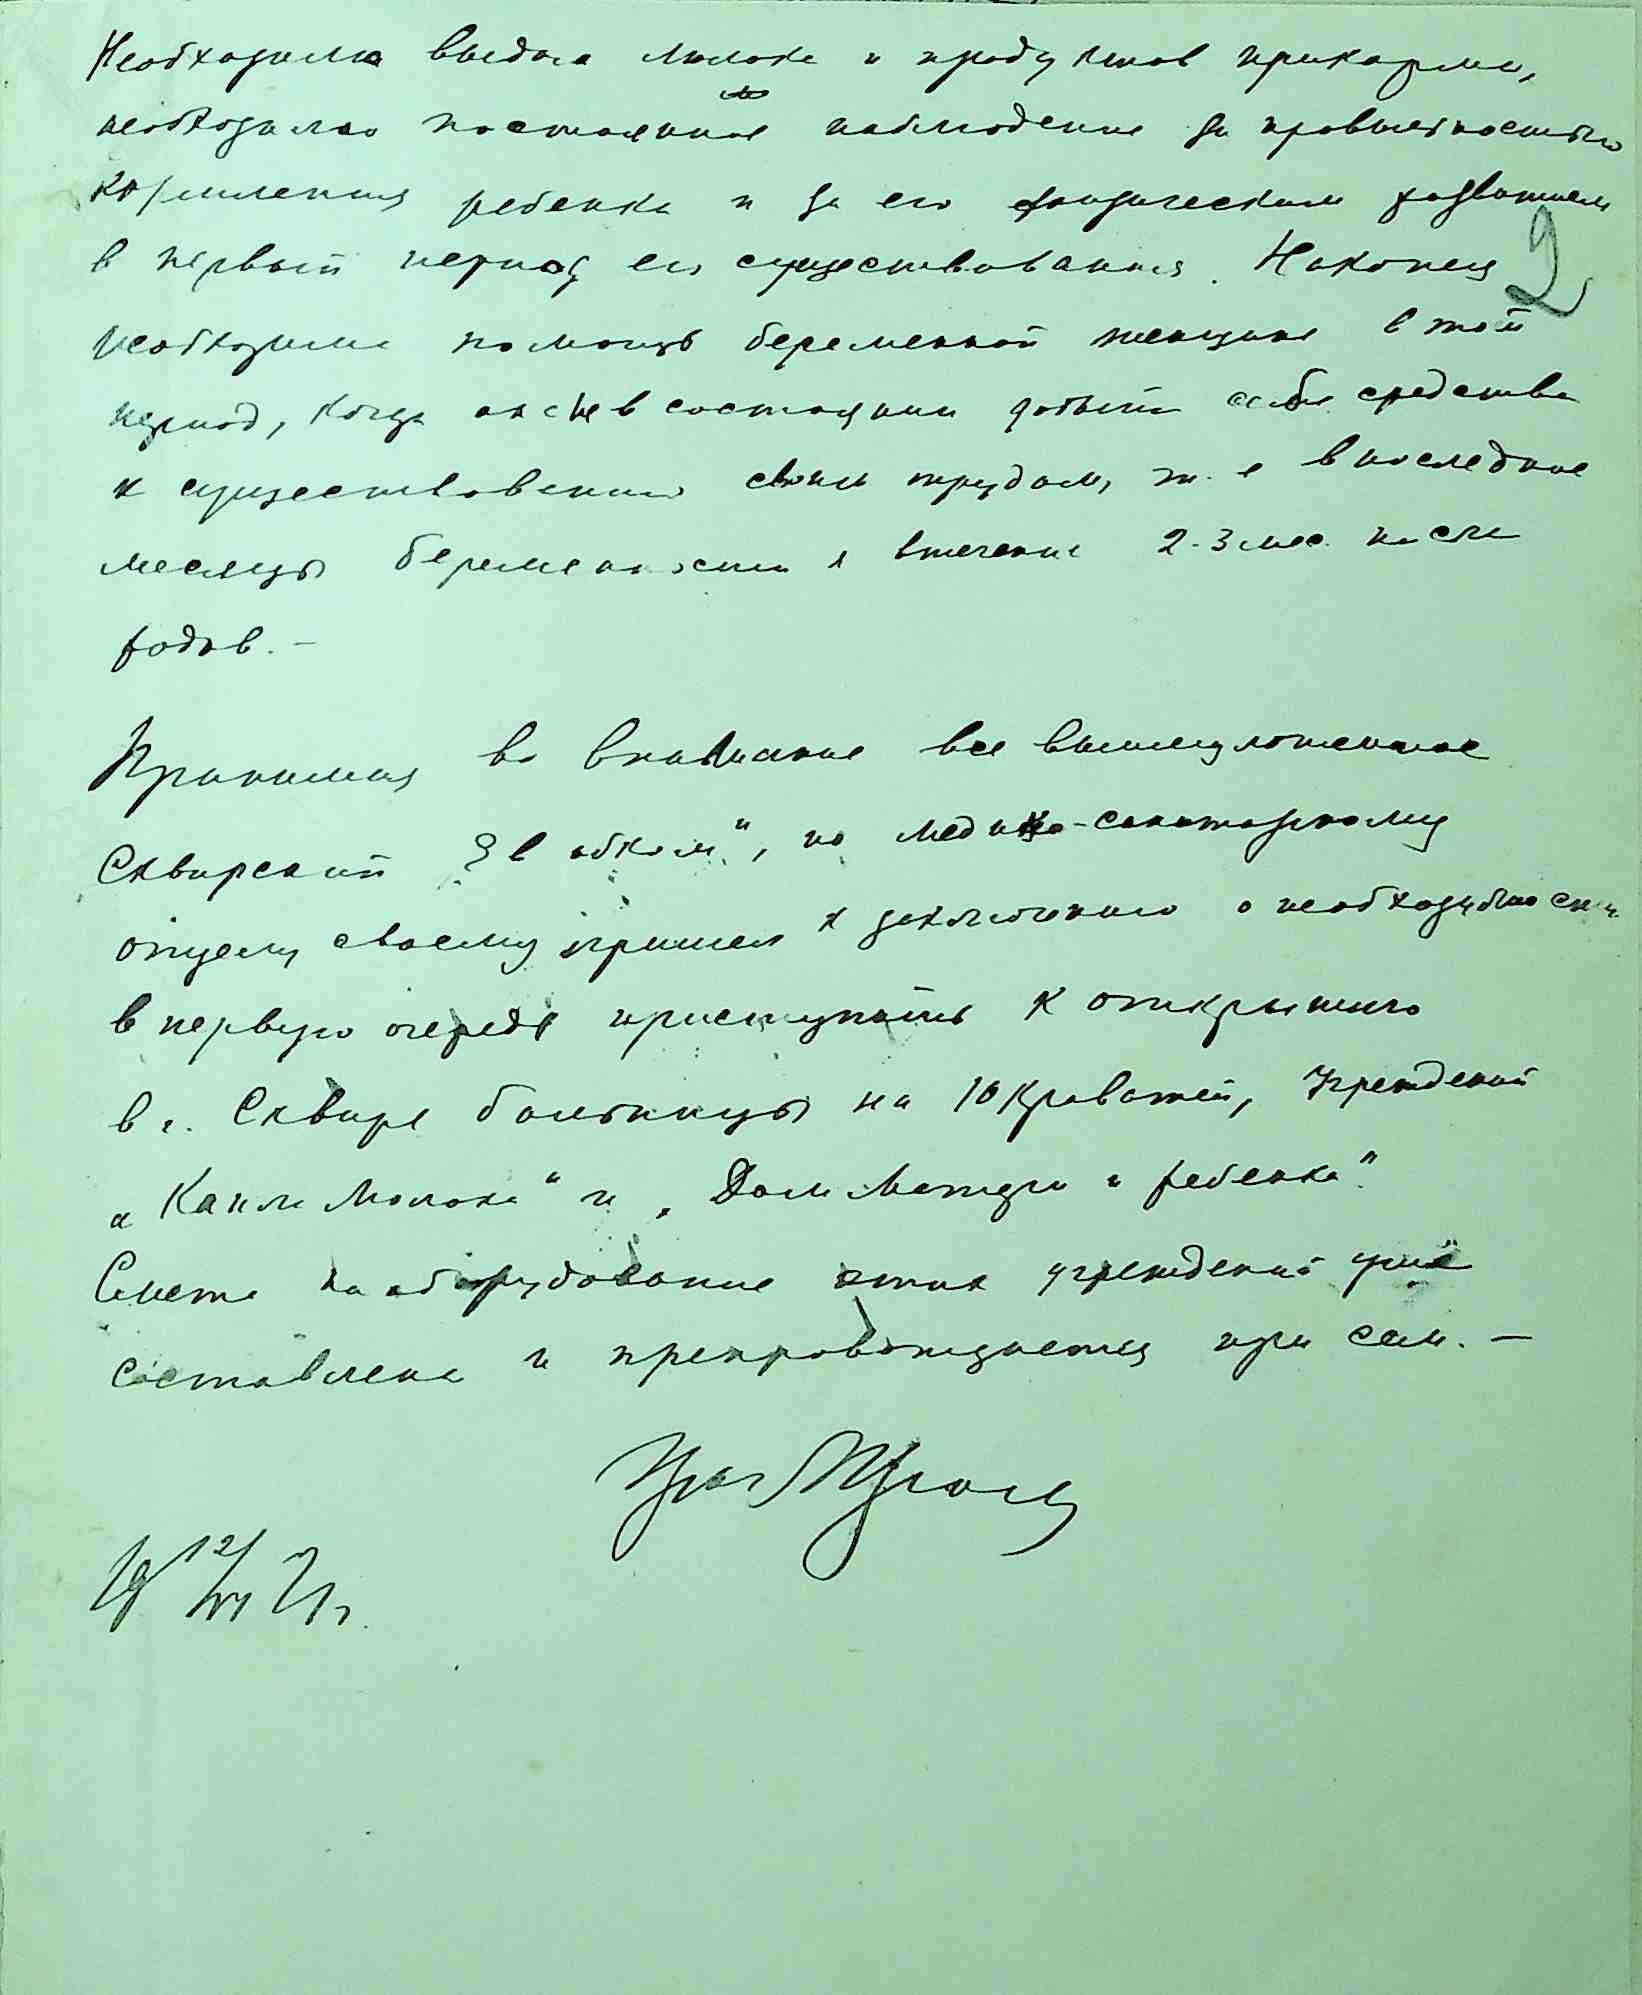 Необходима выдача молока и продуктов прикорма,
необходимо постоянное наблюдение за правильностью
кормления ребенка и за его физическим развитием
в первый период его существования. Наконец 2
необходима помощь беременной женщине в той
период, когда она не в состоянии добыть себе средства
к существованию своим трудом, т. е в последние
месяцы беременности и втечение 2-3 мес. после
родов. –
Принимая во внимание все вышеизложенное
Сквирский „Евобком", по медико-санитарному
отделу своему пришел к заключению о необходимости
в первую очередь приступить к открытию
в г. Сквире больницы на 10 кроватей, Учреждений
„Капли молока" и „Дом Матери и ребенка".
Смета на оборудование этих учреждений уже
составлена и препровождается при сем. –
Врач
19 12/VII 21 г.